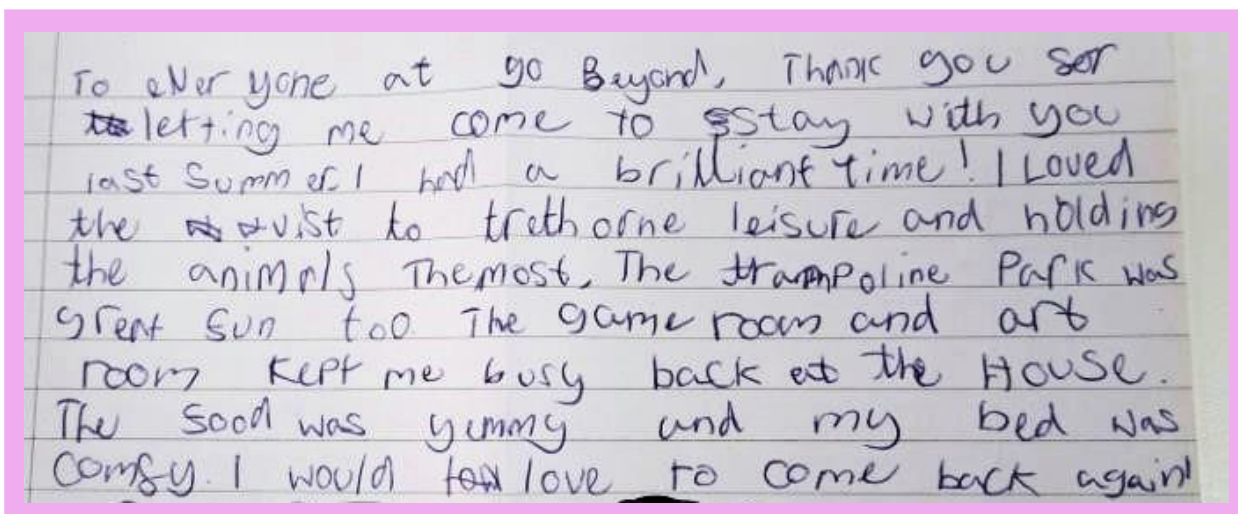 To everyone at go Beyond, Thank you for
letting me come to stay with you
last Summer. I had a brilliant time! I Loved
the vist to trethorne leisure and holding
the animals The most, The trampoline Park was
great fun too. The game room and art
room kept me busy back at the House.
The food was yummy and my bed was
comfy. I would love to come back again!